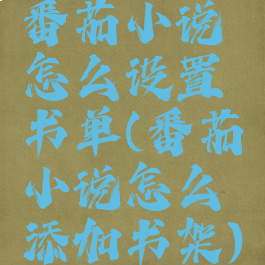 番茄小说
怎么设置
书单(番茄
小说怎么
添加书架)